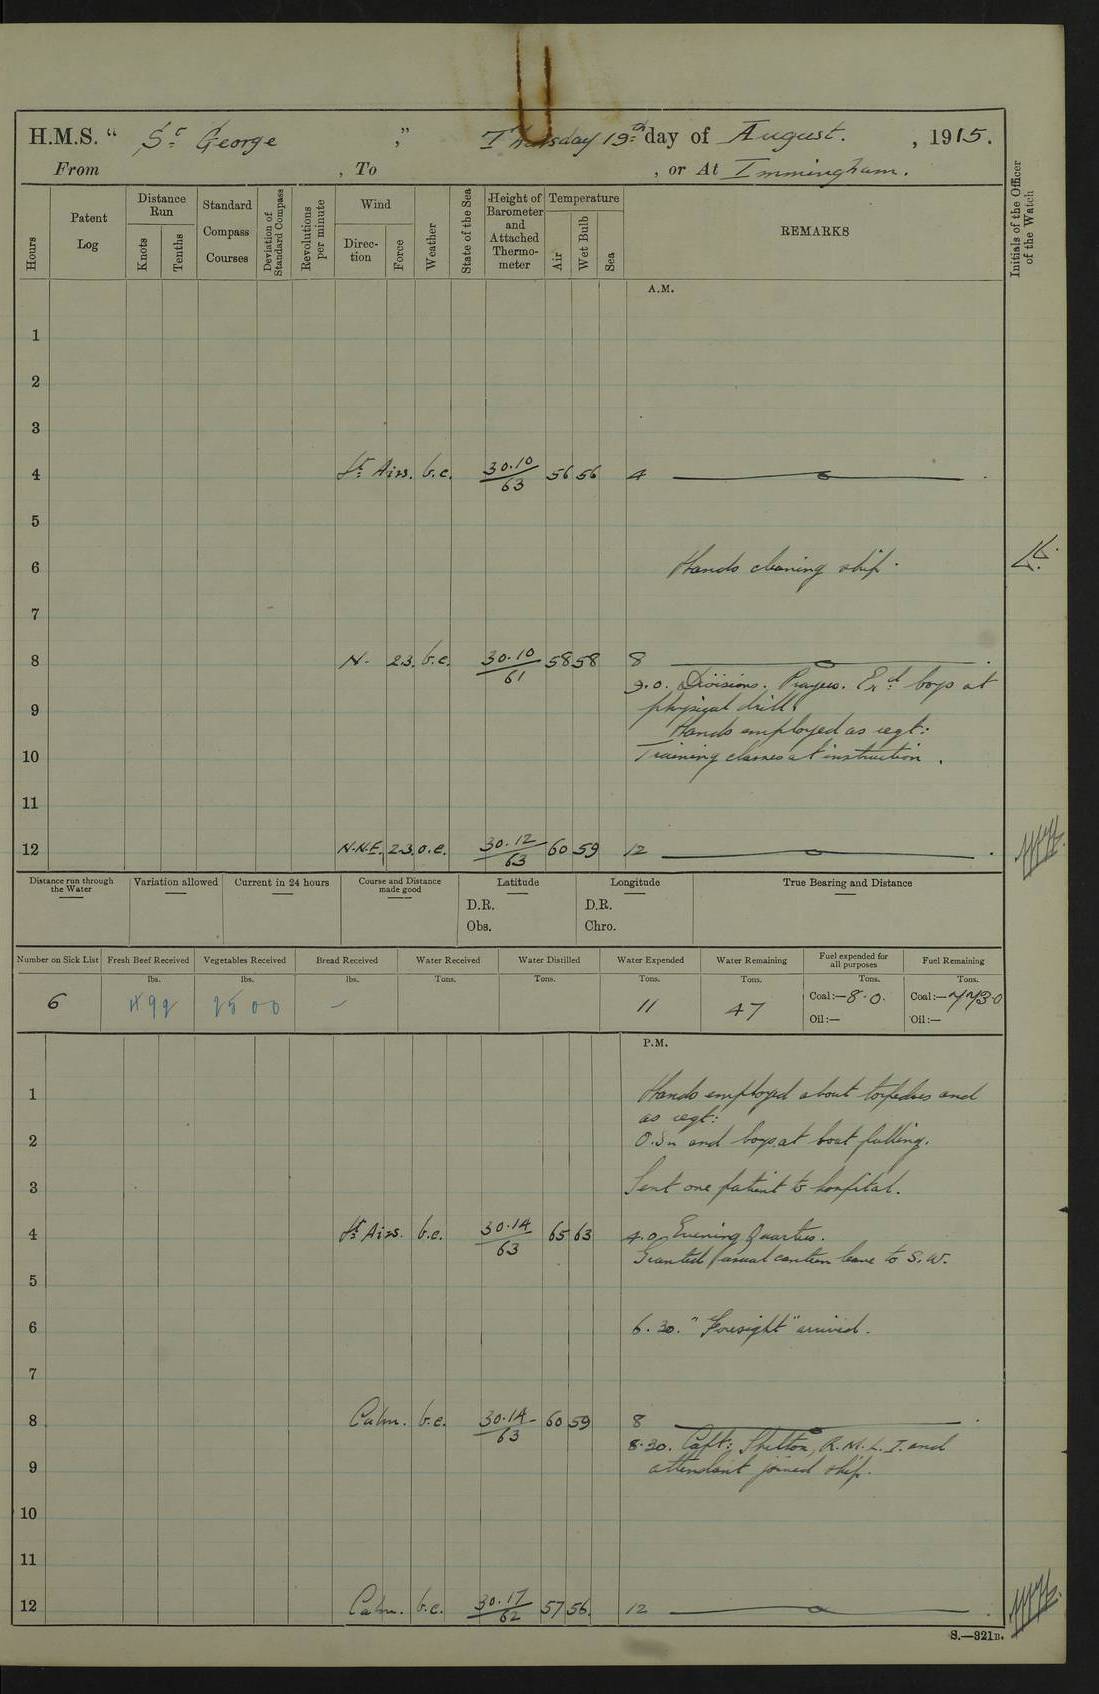 H.M.S. “ St George ” Thursday 19th day of August. , 1915.
From , To , or At Immingham.
Hours
Patent Log
Distance Run
Knots
Tenths
Standard Compass Courses
Deviation of Standard Compass
Revolutions per minute
Wind
Direc-tion
Force
Weather
State of the Sea
Height of Barometer and Attached Thermo-meter
Temperature
Air
Wet Bulb
Sea
REMARKS
Initials of the Officer of the Watch
A.M.
1
2
3
4 Lt Airs. b.c. 30.10/63 56 56 4
5
6 Hands cleaning ship.
7
8 N. 2.3. b.c. 30.10/61 58 58 8
9.0. Divisions. Prayers. Exd boys at
9 physical drill.
Hands employed as reqt:
10 Training classes at instruction.
11
12 N.N.E. 2.3. o.c. 30.12/63 60 59 12
Distance run through the Water
Variation allowed
Current in 24 hours
Course and Distance made good
Latitude
D.R.
Obs.
Longitude
D.R.
Chro.
True Bearing and Distance
Number on Sick List Fresh Beef Received Vegetables Received Bread Received Water Received Water Distilled Water Expended Water Remaining Fuel expended for all purposes Fuel Remaining
lbs. lbs. lbs. Tons. Tons. Tons. Tons. Tons. Tons.
6 492 2500 – 11 47 Coal:—8.0. Coal:—773.0
Oil:— Oil:—
P.M.
1 Hands employed about torpedoes and
as reqt:
2 O.Sn and boys at boat pulling.
3 Sent one patient to hospital.
4 Lt Airs. b.c. 30.14/63 65 63 4.0. Evening Quarters.
Granted casual canteen leave to S.W.
5
6 6.30. "Foresight" arrived.
7
8 Calm. b.c. 30.14/63 60 59 8
8.30. Capt: Shelton, R.M.L.I. and
9 attendant joined ship.
10
11
12 Calm. b.c. 30.17/62 57 56. 12
S.—321B.